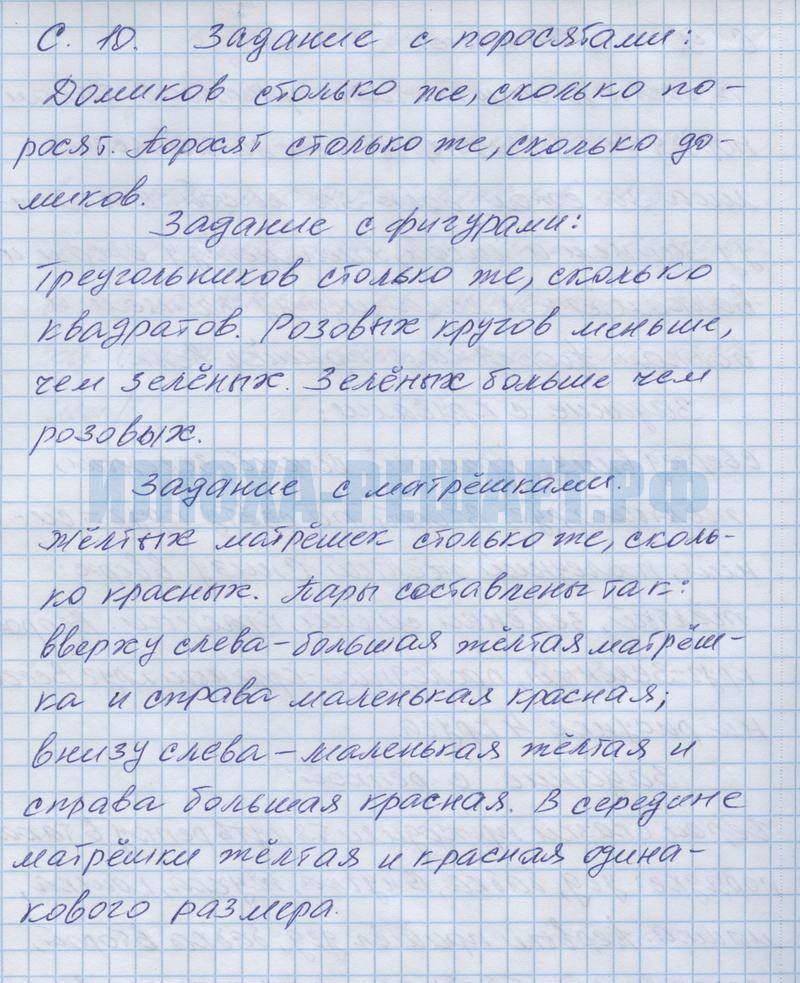 С. 10. Задание с поросятами:
Домиков столько же, сколько по-
росят. Поросят столько же, сколько до-
миков.
Задание с фигурами:
Треугольников столько же, сколько
квадратов. Розовых кругов меньше,
чем зелёных. Зелёных больше чем
розовых.
ИЛЮХА-РЕШАЕТ.РФ
Задание с матрёшками.
Жёлтых матрёшек столько же, сколь-
ко красных. Пары составлены так:
вверху слева – большая жёлтая матрёш-
ка и справа маленькая красная;
внизу слева – маленькая жёлтая и
справа большая красная. В середине
матрёшки жёлтая и красная одина-
кового размера.